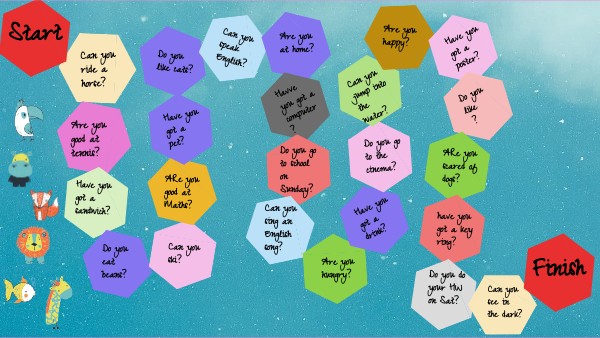 Start
Can you
ride a
horse?
Are you
good at
tennis?
Have you
got a
sandwich?
Do you
eat
beans?
Can you
ski?
ARe you
good at
Maths?
Have you
got a
pet?
Do you
like cats?
Can you
speak
English?
Are you
at home?
Havve
you got a
computer
?
Do you
go to school
on
Sunday?
Can you
sing an
English
song?
Are you
hungry?
Have you
got a
drink?
Do you go
to the
cinema?
Can you
jump into
the
water?
Are you
happy?
Have you
got a
poster?
Do you
like
?
ARe you
scared of
dogs?
have you
got a key
ring?
Do you do
your HW
on Sat?
Can you
see in
the dark?
Finish